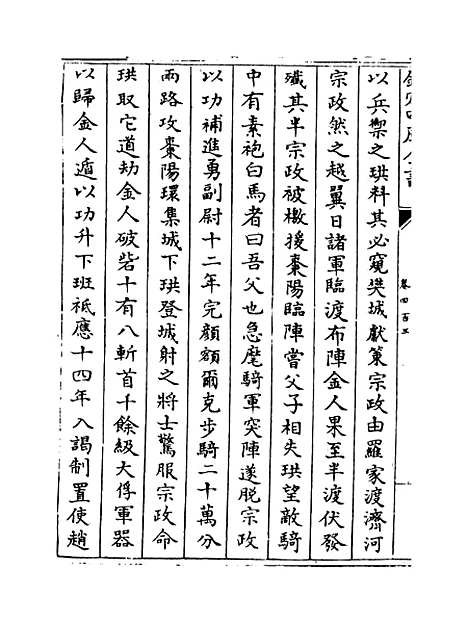 欽定四庫全書
卷四百三
以兵禦之珙料其必窺樊城獻策宗政由羅家渡濟河
宗政然之越翼日諸軍臨渡布陣金人果至半渡伏發
殲其半宗政被檄援棗陽臨陣嘗父子相失珙望敵騎
中有素袍白馬者曰吾父也急麾騎軍突陣遂脫宗政
以功補進勇副尉十二年完顏額爾克步騎二十萬分
兩路攻棗陽環集城下珙登城射之將士驚服宗政命
珙取它道劫金人破砦十有八斬首千餘級大俘軍器
以歸金人遁以功升下班祗應十四年入謁制置使趙